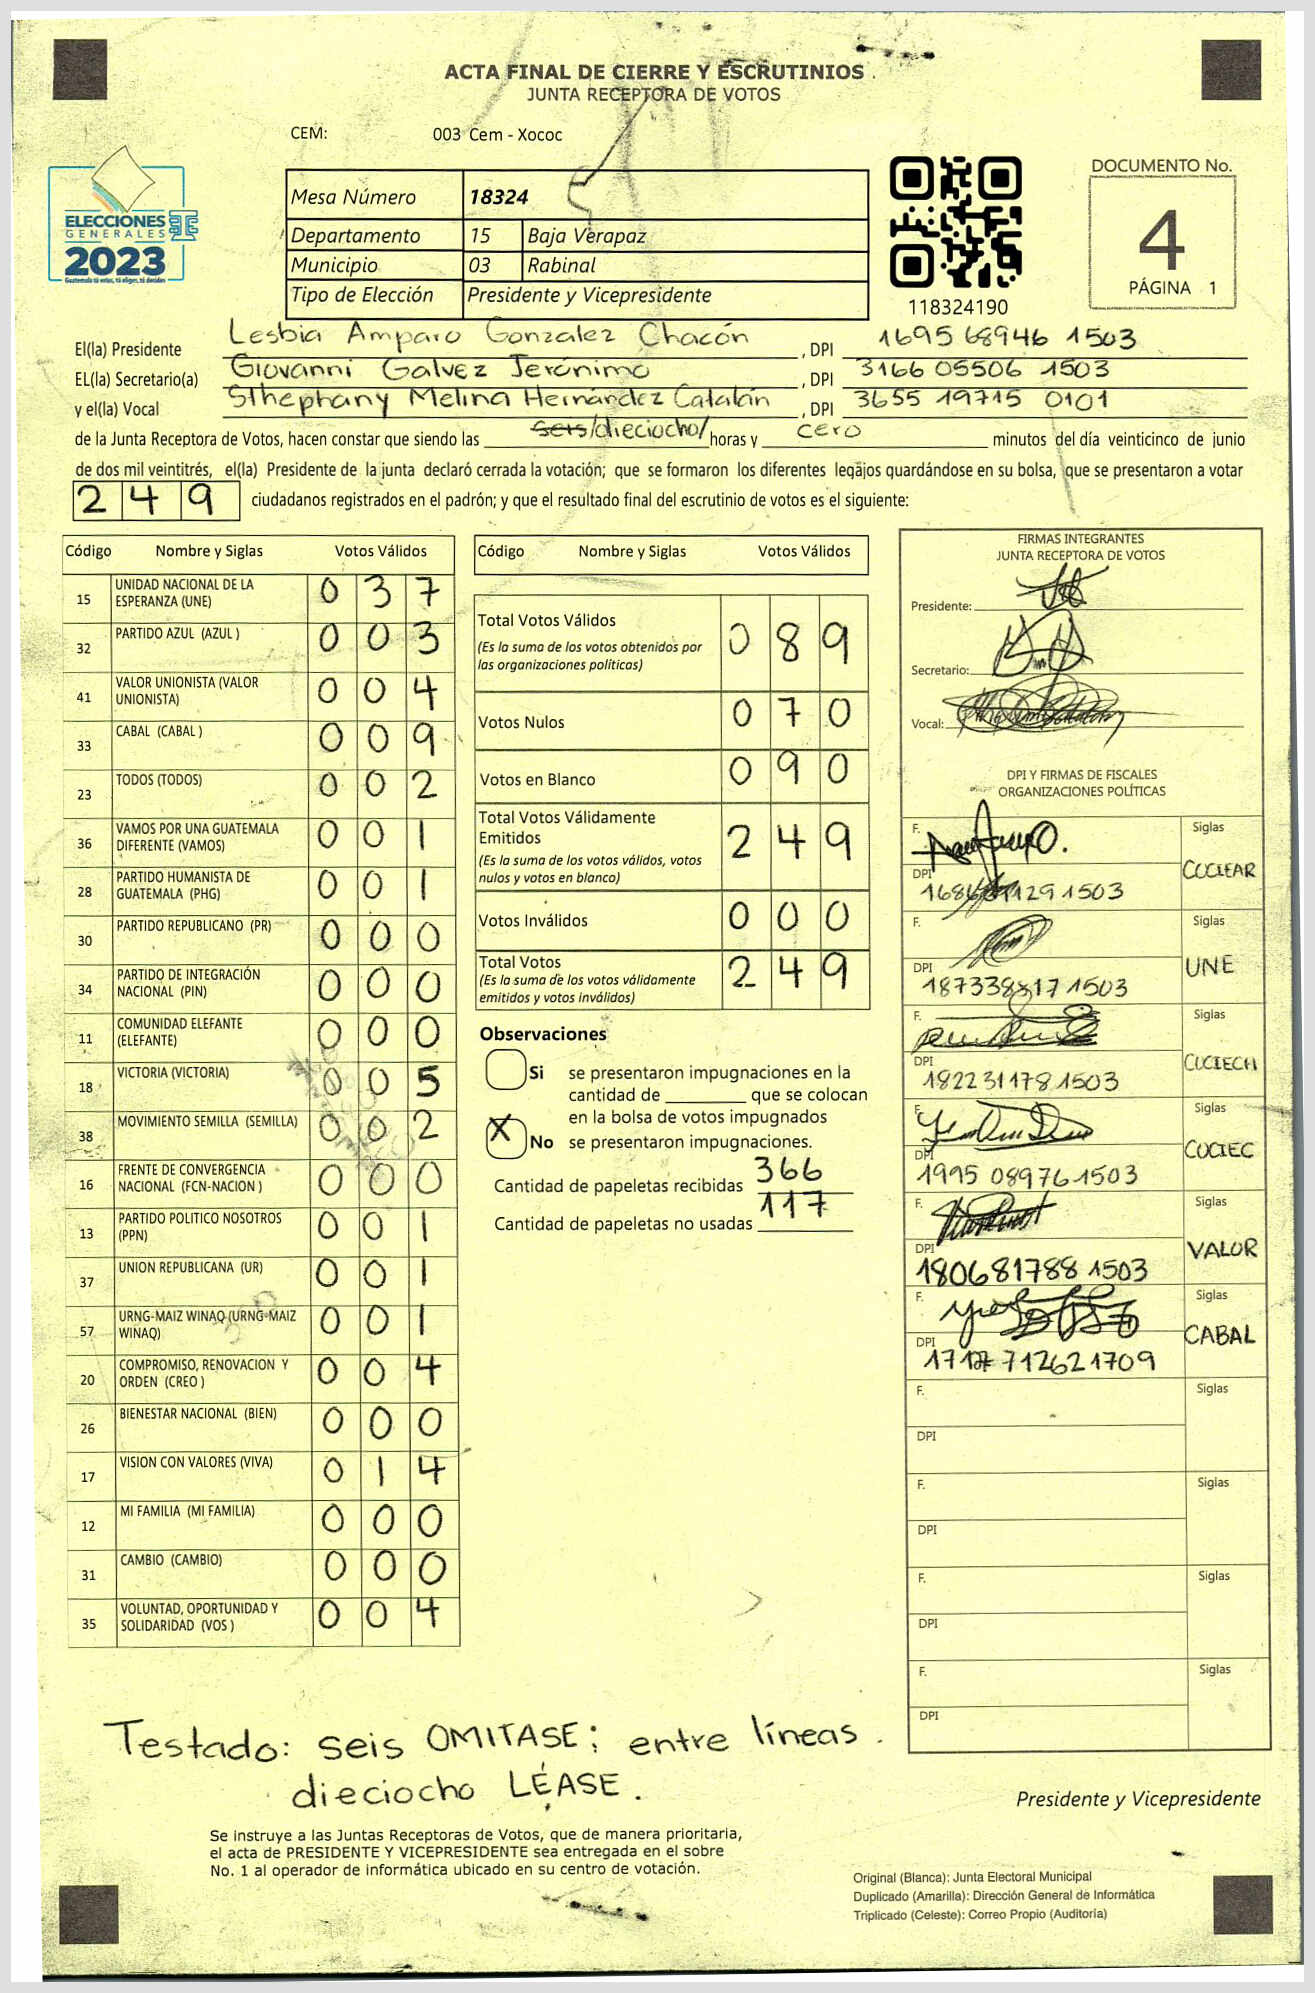 ACTA FINAL DE CIERRE Y ESCRUTINIOS
JUNTA RECEPTORA DE VOTOS
CEM: 003 Cem - Xococ
ELECCIONES
GENERALES
2023
Guatemala tú eres, tú eliges, tú decides
Mesa Número 18324
Departamento 15 Baja Verapaz
Municipio 03 Rabinal
Tipo de Elección Presidente y Vicepresidente
118324190
DOCUMENTO No.
4
PÁGINA 1
El(la) Presidente Lesbia Amparo Gonzalez Chacón , DPI 1695 68946 1503
EL(la) Secretario(a) Giovanni Galvez Jerónimo , DPI 3166 05506 1503
y el(la) Vocal Sthephany Melina Hernández Catalán , DPI 3655 19715 0101
de la Junta Receptora de Votos, hacen constar que siendo las seis/dieciocho/ horas y cero minutos del día veinticinco de junio
de dos mil veintitrés, el(la) Presidente de la junta declaró cerrada la votación; que se formaron los diferentes legajos guardándose en su bolsa, que se presentaron a votar
249 ciudadanos registrados en el padrón; y que el resultado final del escrutinio de votos es el siguiente:
Código Nombre y Siglas Votos Válidos
15 UNIDAD NACIONAL DE LA ESPERANZA (UNE) 0 3 7
32 PARTIDO AZUL (AZUL ) 0 0 3
41 VALOR UNIONISTA (VALOR UNIONISTA) 0 0 4
33 CABAL (CABAL ) 0 0 9
23 TODOS (TODOS) 0 0 2
36 VAMOS POR UNA GUATEMALA DIFERENTE (VAMOS) 0 0 1
28 PARTIDO HUMANISTA DE GUATEMALA (PHG) 0 0 1
30 PARTIDO REPUBLICANO (PR) 0 0 0
34 PARTIDO DE INTEGRACIÓN NACIONAL (PIN) 0 0 0
11 COMUNIDAD ELEFANTE (ELEFANTE) 0 0 0
18 VICTORIA (VICTORIA) 0 0 5
38 MOVIMIENTO SEMILLA (SEMILLA) 0 0 2
16 FRENTE DE CONVERGENCIA NACIONAL (FCN-NACION ) 0 0 0
13 PARTIDO POLITICO NOSOTROS (PPN) 0 0 1
37 UNION REPUBLICANA (UR) 0 0 1
57 URNG-MAIZ WINAQ (URNG-MAIZ WINAQ) 0 0 1
20 COMPROMISO, RENOVACION Y ORDEN (CREO ) 0 0 4
26 BIENESTAR NACIONAL (BIEN) 0 0 0
17 VISION CON VALORES (VIVA) 0 1 4
12 MI FAMILIA (MI FAMILIA) 0 0 0
31 CAMBIO (CAMBIO) 0 0 0
35 VOLUNTAD, OPORTUNIDAD Y SOLIDARIDAD (VOS ) 0 0 4
Código Nombre y Siglas Votos Válidos
Total Votos Válidos 0 8 9
(Es la suma de los votos obtenidos por
las organizaciones políticas)
Votos Nulos 0 7 0
Votos en Blanco 0 9 0
Total Votos Válidamente
Emitidos 2 4 9
(Es la suma de los votos válidos, votos
nulos y votos en blanco)
Votos Inválidos 0 0 0
Total Votos 2 4 9
(Es la suma de los votos válidamente
emitidos y votos inválidos)
Observaciones
Si se presentaron impugnaciones en la
cantidad de ________ que se colocan
en la bolsa de votos impugnados
X No se presentaron impugnaciones.
Cantidad de papeletas recibidas 366
Cantidad de papeletas no usadas 117
FIRMAS INTEGRANTES
JUNTA RECEPTORA DE VOTOS
Presidente:
Secretario:
Vocal:
DPI Y FIRMAS DE FISCALES
ORGANIZACIONES POLÍTICAS
F. Siglas
DPI 1129 1503
F. Siglas UNE
DPI 187338817 1503
F. Siglas
DPI 182231178 1503
F. Siglas
DPI 1995 08976 1503
F. Siglas VALOR
DPI 180681788 1503
F. Siglas CABAL
DPI 712621709
F. Siglas
DPI
F. Siglas
DPI
F. Siglas
DPI
F. Siglas
DPI
Testado: seis OMITASE; entre líneas.
dieciocho LÉASE.
Presidente y Vicepresidente
Se instruye a las Juntas Receptoras de Votos, que de manera prioritaria,
el acta de PRESIDENTE Y VICEPRESIDENTE sea entregada en el sobre
No. 1 al operador de informática ubicado en su centro de votación.
Original (Blanca): Junta Electoral Municipal
Duplicado (Amarilla): Dirección General de Informática
Triplicado (Celeste): Correo Propio (Auditoría)